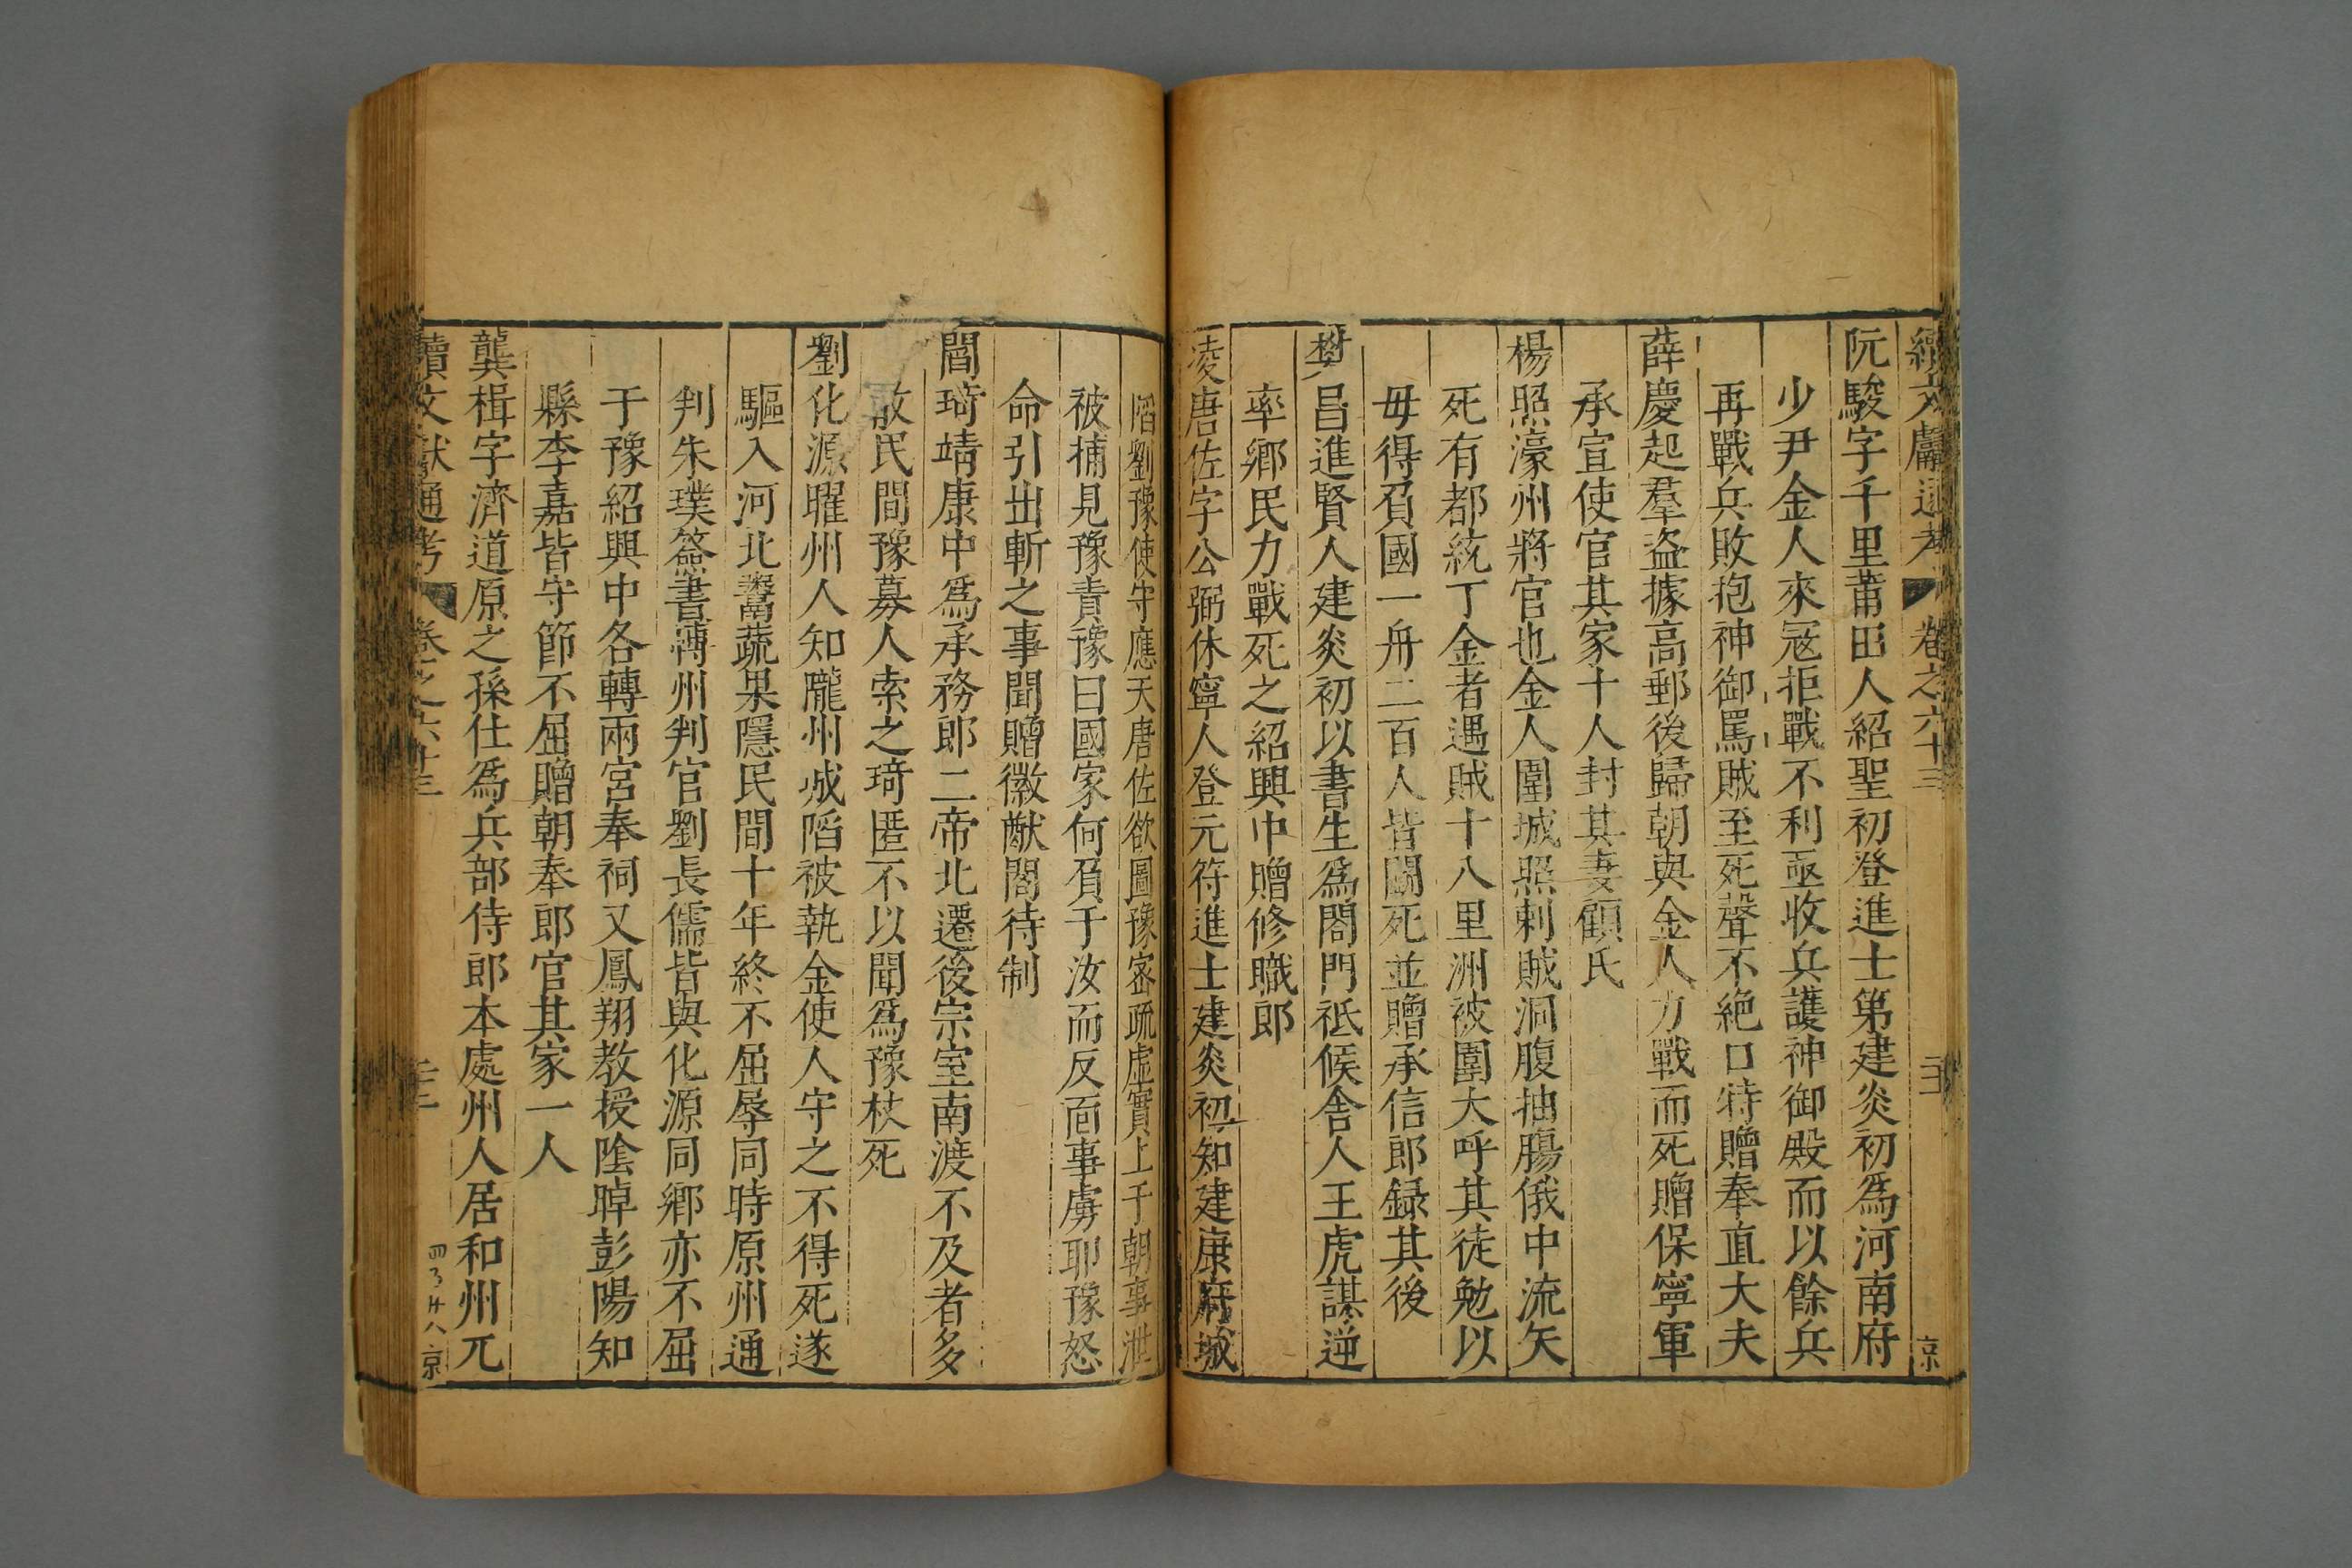 續文獻通考 卷之六十三 京
阮駿字千里莆田人紹聖初登進士第建炎初爲河南府
少尹金人來冦拒戰不利亟收兵護神御殿而以餘兵
再戰兵敗抱神御罵賊至死聲不絶口特贈奉直大夫
薛慶起羣盗據高郵後歸朝與金人力戰而死贈保寧軍
承宣使官其家十人封其妻顧氏
楊照濠州將官也金人圍城照刺賊洞腹抽膓俄中流矢
死有都統丁金者遇賊十八里洲被圍大呼其徒勉以
毋得負國一舟二百人皆鬬死並贈承信郎録其後
樊昌進賢人建炎初以書生爲閤門祗候舍人王虎謀逆
率鄉民力戰死之紹興中贈修職郎
凌唐佐字公弼休寧人登元符進士建炎初知建康府城
陷劉豫使守應天唐佐欲圖豫密疏虚實上于朝事泄
被捕見豫責豫曰國家何負于汝而反面事虜耶豫怒
命引出斬之事聞贈徽猷閣待制
閻琦靖康中爲承務郎二帝北遷後宗室南渡不及者多
散民間豫募人索之琦匿不以聞爲豫杖死
劉化源曜州人知隴州城陷被執金使人守之不得死遂
驅入河北鬻蔬果隱民間十年終不屈辱同時原州通
判朱璞簽書溥州判官劉長儒皆與化源同鄉亦不屈
于豫紹興中各轉兩宮奉祠又鳳翔教授陰晫彭陽知
縣李嘉皆守節不屈贈朝奉郎官其家一人
龔楫字濟道原之孫仕爲兵部侍郎本處州人居和州兀
續文獻通考 卷之六十三 京